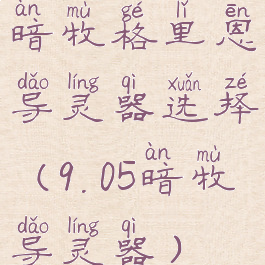 àn mù gé lǐ ēn
暗牧格里恩
dǎo líng qì xuǎn zé
导灵器选择
àn mù
(9.05暗牧
dǎo líng qì
导灵器)